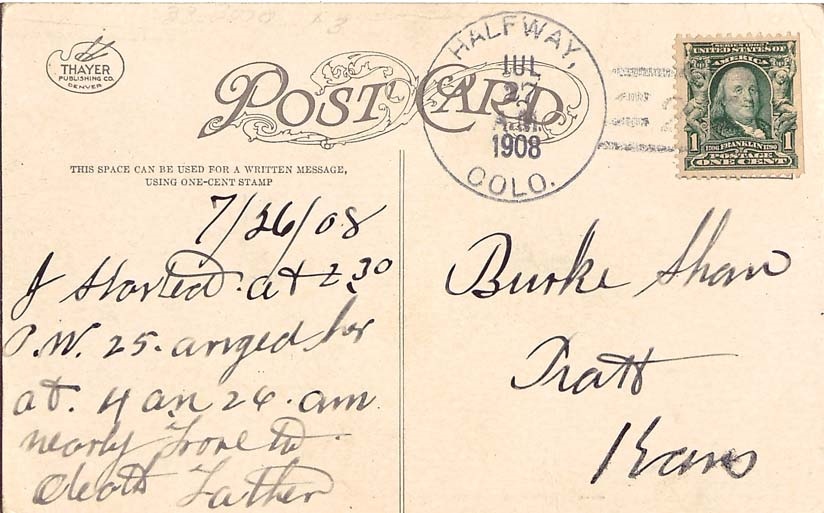 THAYER
PUBLISHING CO.
DENVER
POST CARD
HALFWAY,
JUL
27
A.M.
1908
COLO.
SERIES 1902
UNITED STATES OF
AMERICA
1 1706 FRANKLIN 1790 1
POSTAGE
ONE CENT
THIS SPACE CAN BE USED FOR A WRITTEN MESSAGE,
USING ONE-CENT STAMP
7/26/08
I Started at 2 30
P.M. 25. arived her
at. 4 an 26. am
nearly frose to
death Father
Burke Shaw
Pratt
Kans